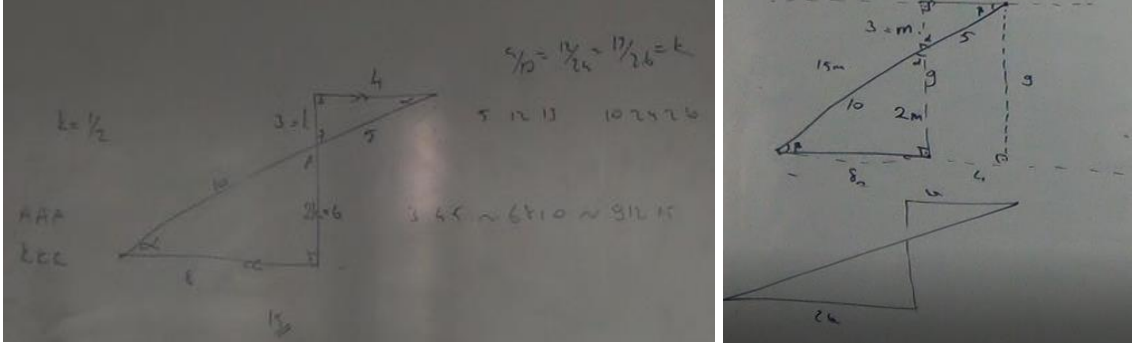 5/10 = 12/24 = 13/26 = k
4
k = 1/2
3 =
5
5 12 13 10 24 26
10
AAA
= 6
3 4 5 ~ 6 8 10 ~ 9 12 15
KKK
8
3 = m
5
15m
9
9
10
2m
8
4
2k